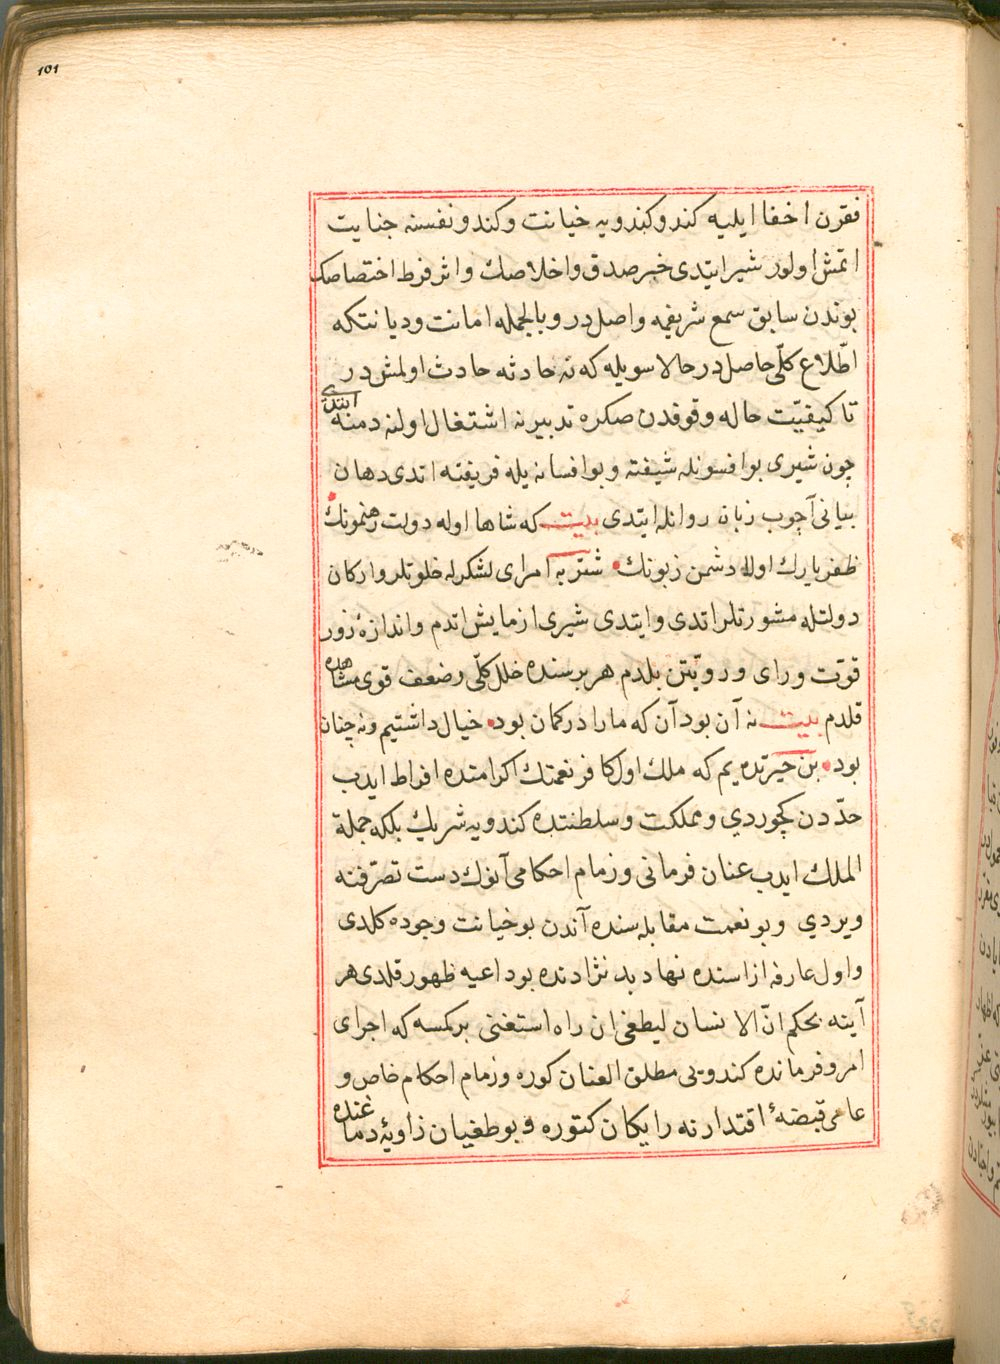 101
فقرن اخفا ايليه كندو كندويه خيانت وكندو نفسنه جنايت
اتمش اولور شير ايتدى خبر صدق واخلاصك واثر فرط اختصاصك
بوندن سابق سمع شريفمه واصلدر وبالجمله امانت وديانتكه
اطّلاع كلّى حاصلدر حالا سويله كه نه حادثه حادث اولمشدر
تا كيفيّت حاله وقوفدن صكره تدبيرنه اشتغال اولنه دمنه ايتدى
چون شيرى بو افسونله شيفته وبو افسانه يله فريفته اتدى دهان
بيانى آچوب زبان روانله ايتدى بيت كه شاها اوله دولت رهنمونك
ظفر يارك اوله دشمن زبونك شتربه امراى لشكرله خلوتلر واركان
دولتله مشورتلر اتدى وايتدى شيرى ازمايش اتدم واندازۀ زور
قوّت وراى ورويّتن بلدم هر برسنده خلل كلّى وضعف قوى مشاهده
قلدم بيت نه آن بود آن كه ما را در كمان بود خيال داشتيم ونه چنان
بود بن حيرتده يم كه ملك اول كافر نعمتك اكرامنده افراط ايدب
حدّدن كچوردي ومملكت وسلطنتده كندويه شريك بلكه جملة
الملك ايدب عنان فرمانى وزمام احكامى آنوك دست تصرّفنه
ويردي وبو نعمت مقابله سنده آندن بو خيانت وجوده كلدى
واول عارفه ازاسنده نهاد بد نژادنده بو داعيه ظهور قلدى هر
آينه بحكم انّ الانسان ليطغى ان راه استغنى بر كمسه كه اجراى
امر وفرمانده كندويى مطلق العنان كوره وزمام احكام خاص و
عامى قبضۀ اقتدارنه رايكان كتوره وبو طغيان زاويۀ دماغنده